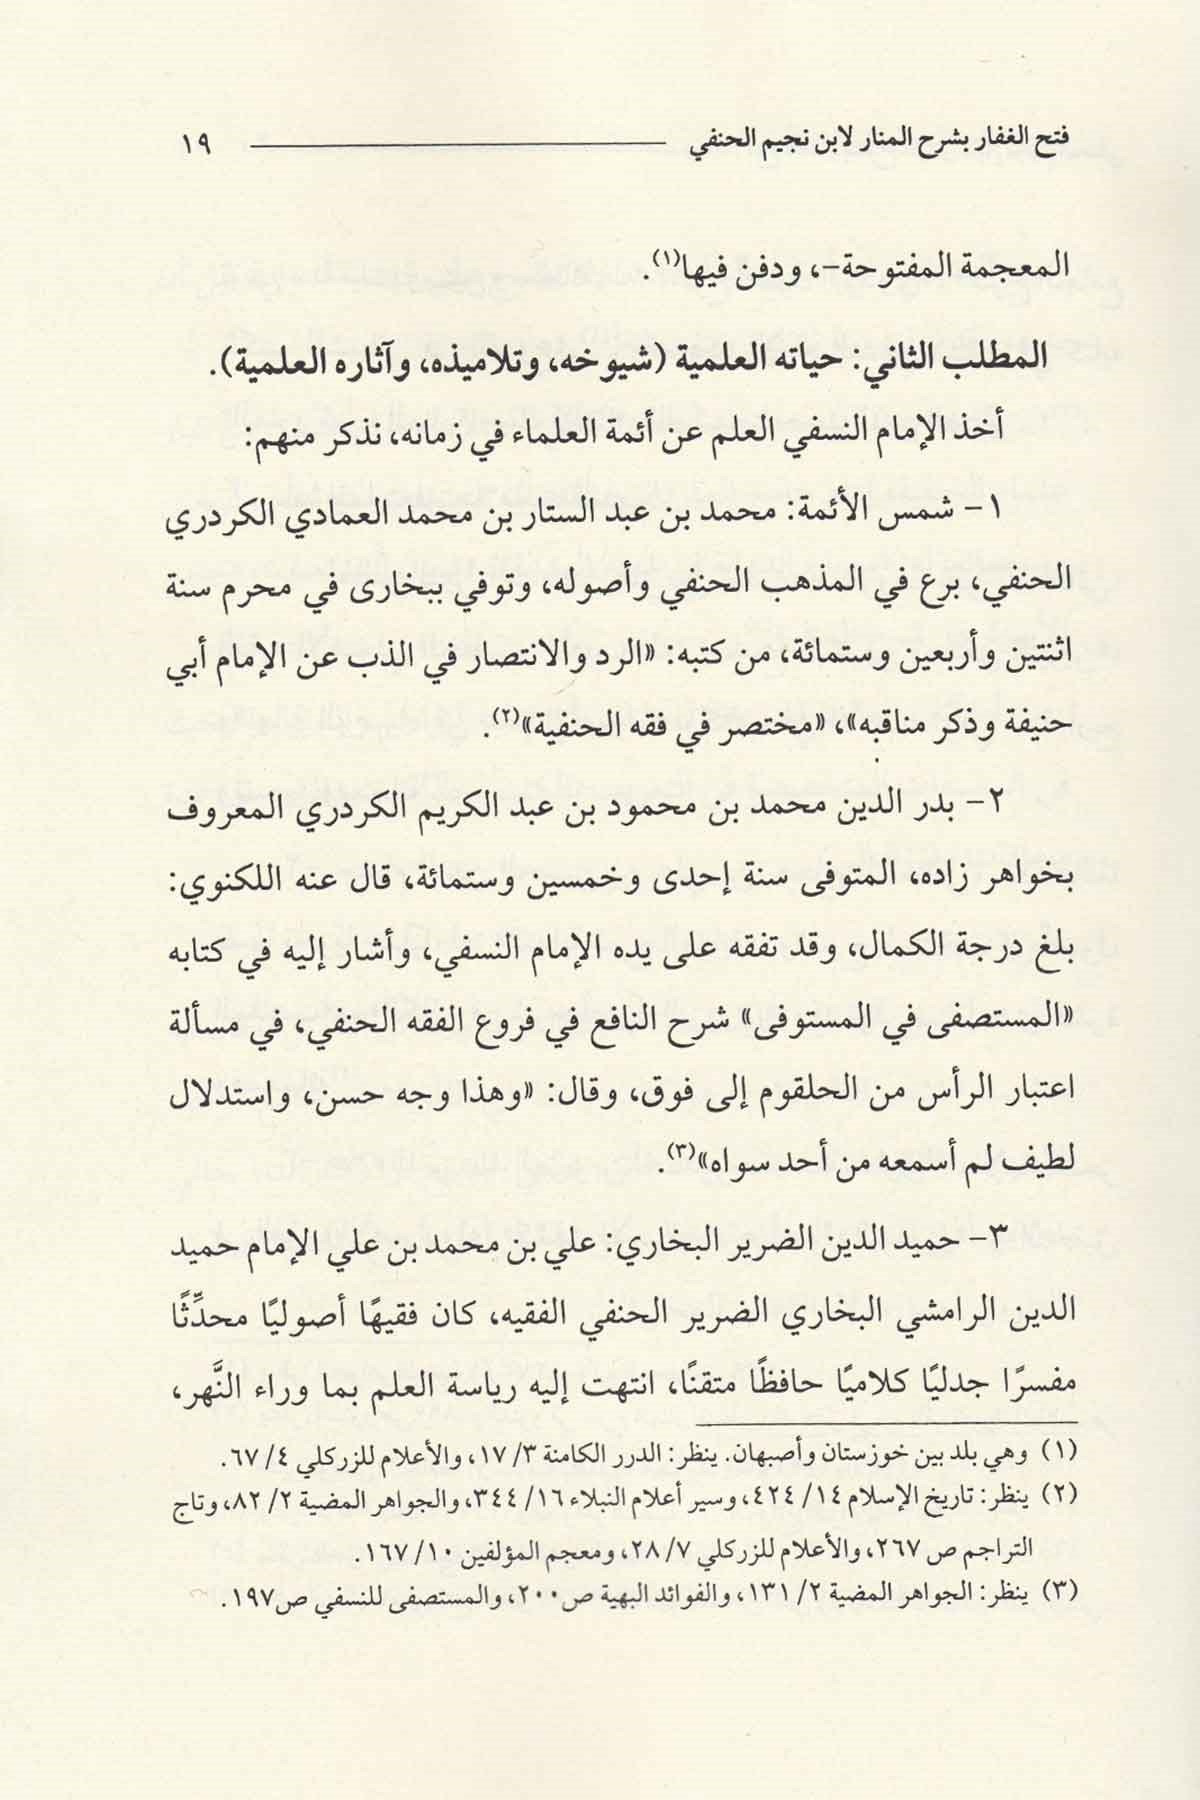 فتح الغفار بشرح المنار لابن نجيم الحنفي ١٩
المعجمة المفتوحة-، ودفن فيها(١).
المطلب الثاني: حياته العلمية (شيوخه، وتلاميذه، وآثاره العلمية).
أخذ الإمام النسفي العلم عن أئمة العلماء في زمانه، نذكر منهم:
١- شمس الأئمة: محمد بن عبد الستار بن محمد العمادي الكردري
الحنفي، برع في المذهب الحنفي وأصوله، وتوفي ببخارى في محرم سنة
اثنتين وأربعين وستمائة، من كتبه: «الرد والانتصار في الذب عن الإمام أبي
حنيفة وذكر مناقبه»، «مختصر في فقه الحنفية»(٢).
٢- بدر الدين محمد بن محمود بن عبد الكريم الكردري المعروف
بخواهر زاده، المتوفى سنة إحدى وخمسين وستمائة، قال عنه اللكنوي:
بلغ درجة الكمال، وقد تفقه على يده الإمام النسفي، وأشار إليه في كتابه
«المستصفى في المستوفى» شرح النافع في فروع الفقه الحنفي، في مسألة
اعتبار الرأس من الحلقوم إلى فوق، وقال: «وهذا وجه حسن، واستدلال
لطيف لم أسمعه من أحد سواه»(٣).
٣- حميد الدين الضرير البخاري: علي بن محمد بن علي الإمام حميد
الدين الرامشي البخاري الضرير الحنفي الفقيه، كان فقيهًا أصوليًا محدِّثًا
مفسرًا جدليًا كلاميًا حافظًا متقنًا، انتهت إليه رياسة العلم بما وراء النَّهر،
(١) وهي بلد بين خوزستان وأصبهان. ينظر: الدرر الكامنة ٣/ ١٧، والأعلام للزركلي ٤/ ٦٧.
(٢) ينظر: تاريخ الإسلام ١٤/ ٤٢٤، وسير أعلام النبلاء ١٦/ ٣٤٤، والجواهر المضية ٢/ ٨٢، وتاج
التراجم ص ٢٦٧، والأعلام للزركلي ٧/ ٢٨، ومعجم المؤلفين ١٠/ ١٦٧.
(٣) ينظر: الجواهر المضية ٢/ ١٣١، والفوائد البهية ص٢٠٠، والمستصفى للنسفي ص١٩٧.